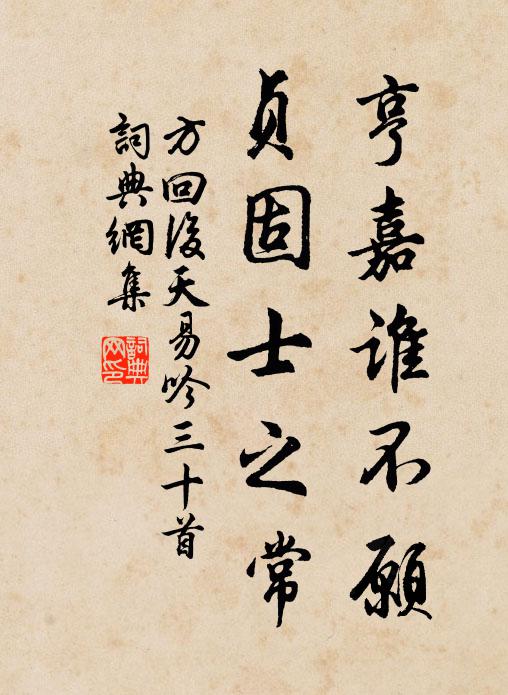 亨嘉誰不願
貞固士之常
方回後天易吟三十首
詞典網集
詞典
網印